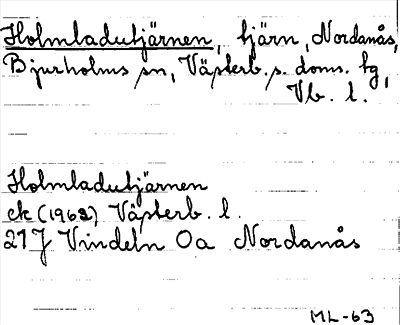 Holmladutjärnen, tjärn, Nordanås,
Bjurholms sn, Västerb. s. doms. tg,
Vb. l.
Holmladutjärnen
ek (1962) Västerb. l.
21J Vindeln 0a Nordanås
ML-63